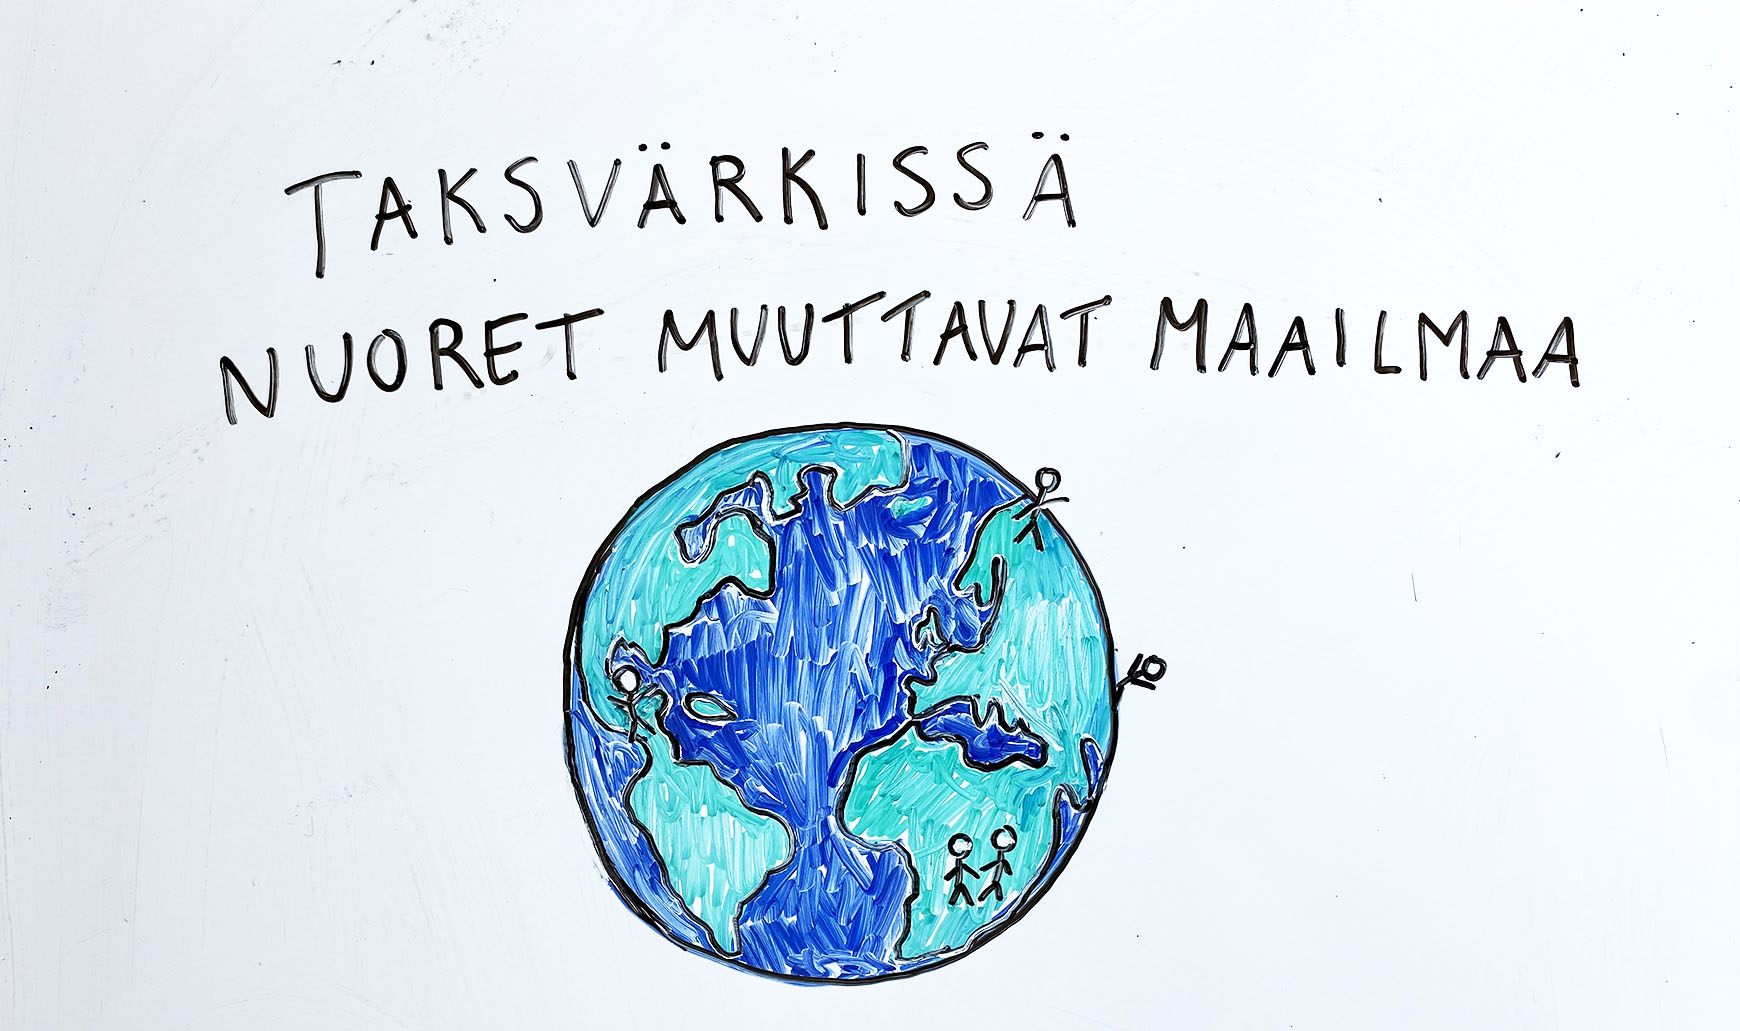 TAKSVÄRKISSÄ
NUORET MUUTTAVAT MAAILMAA